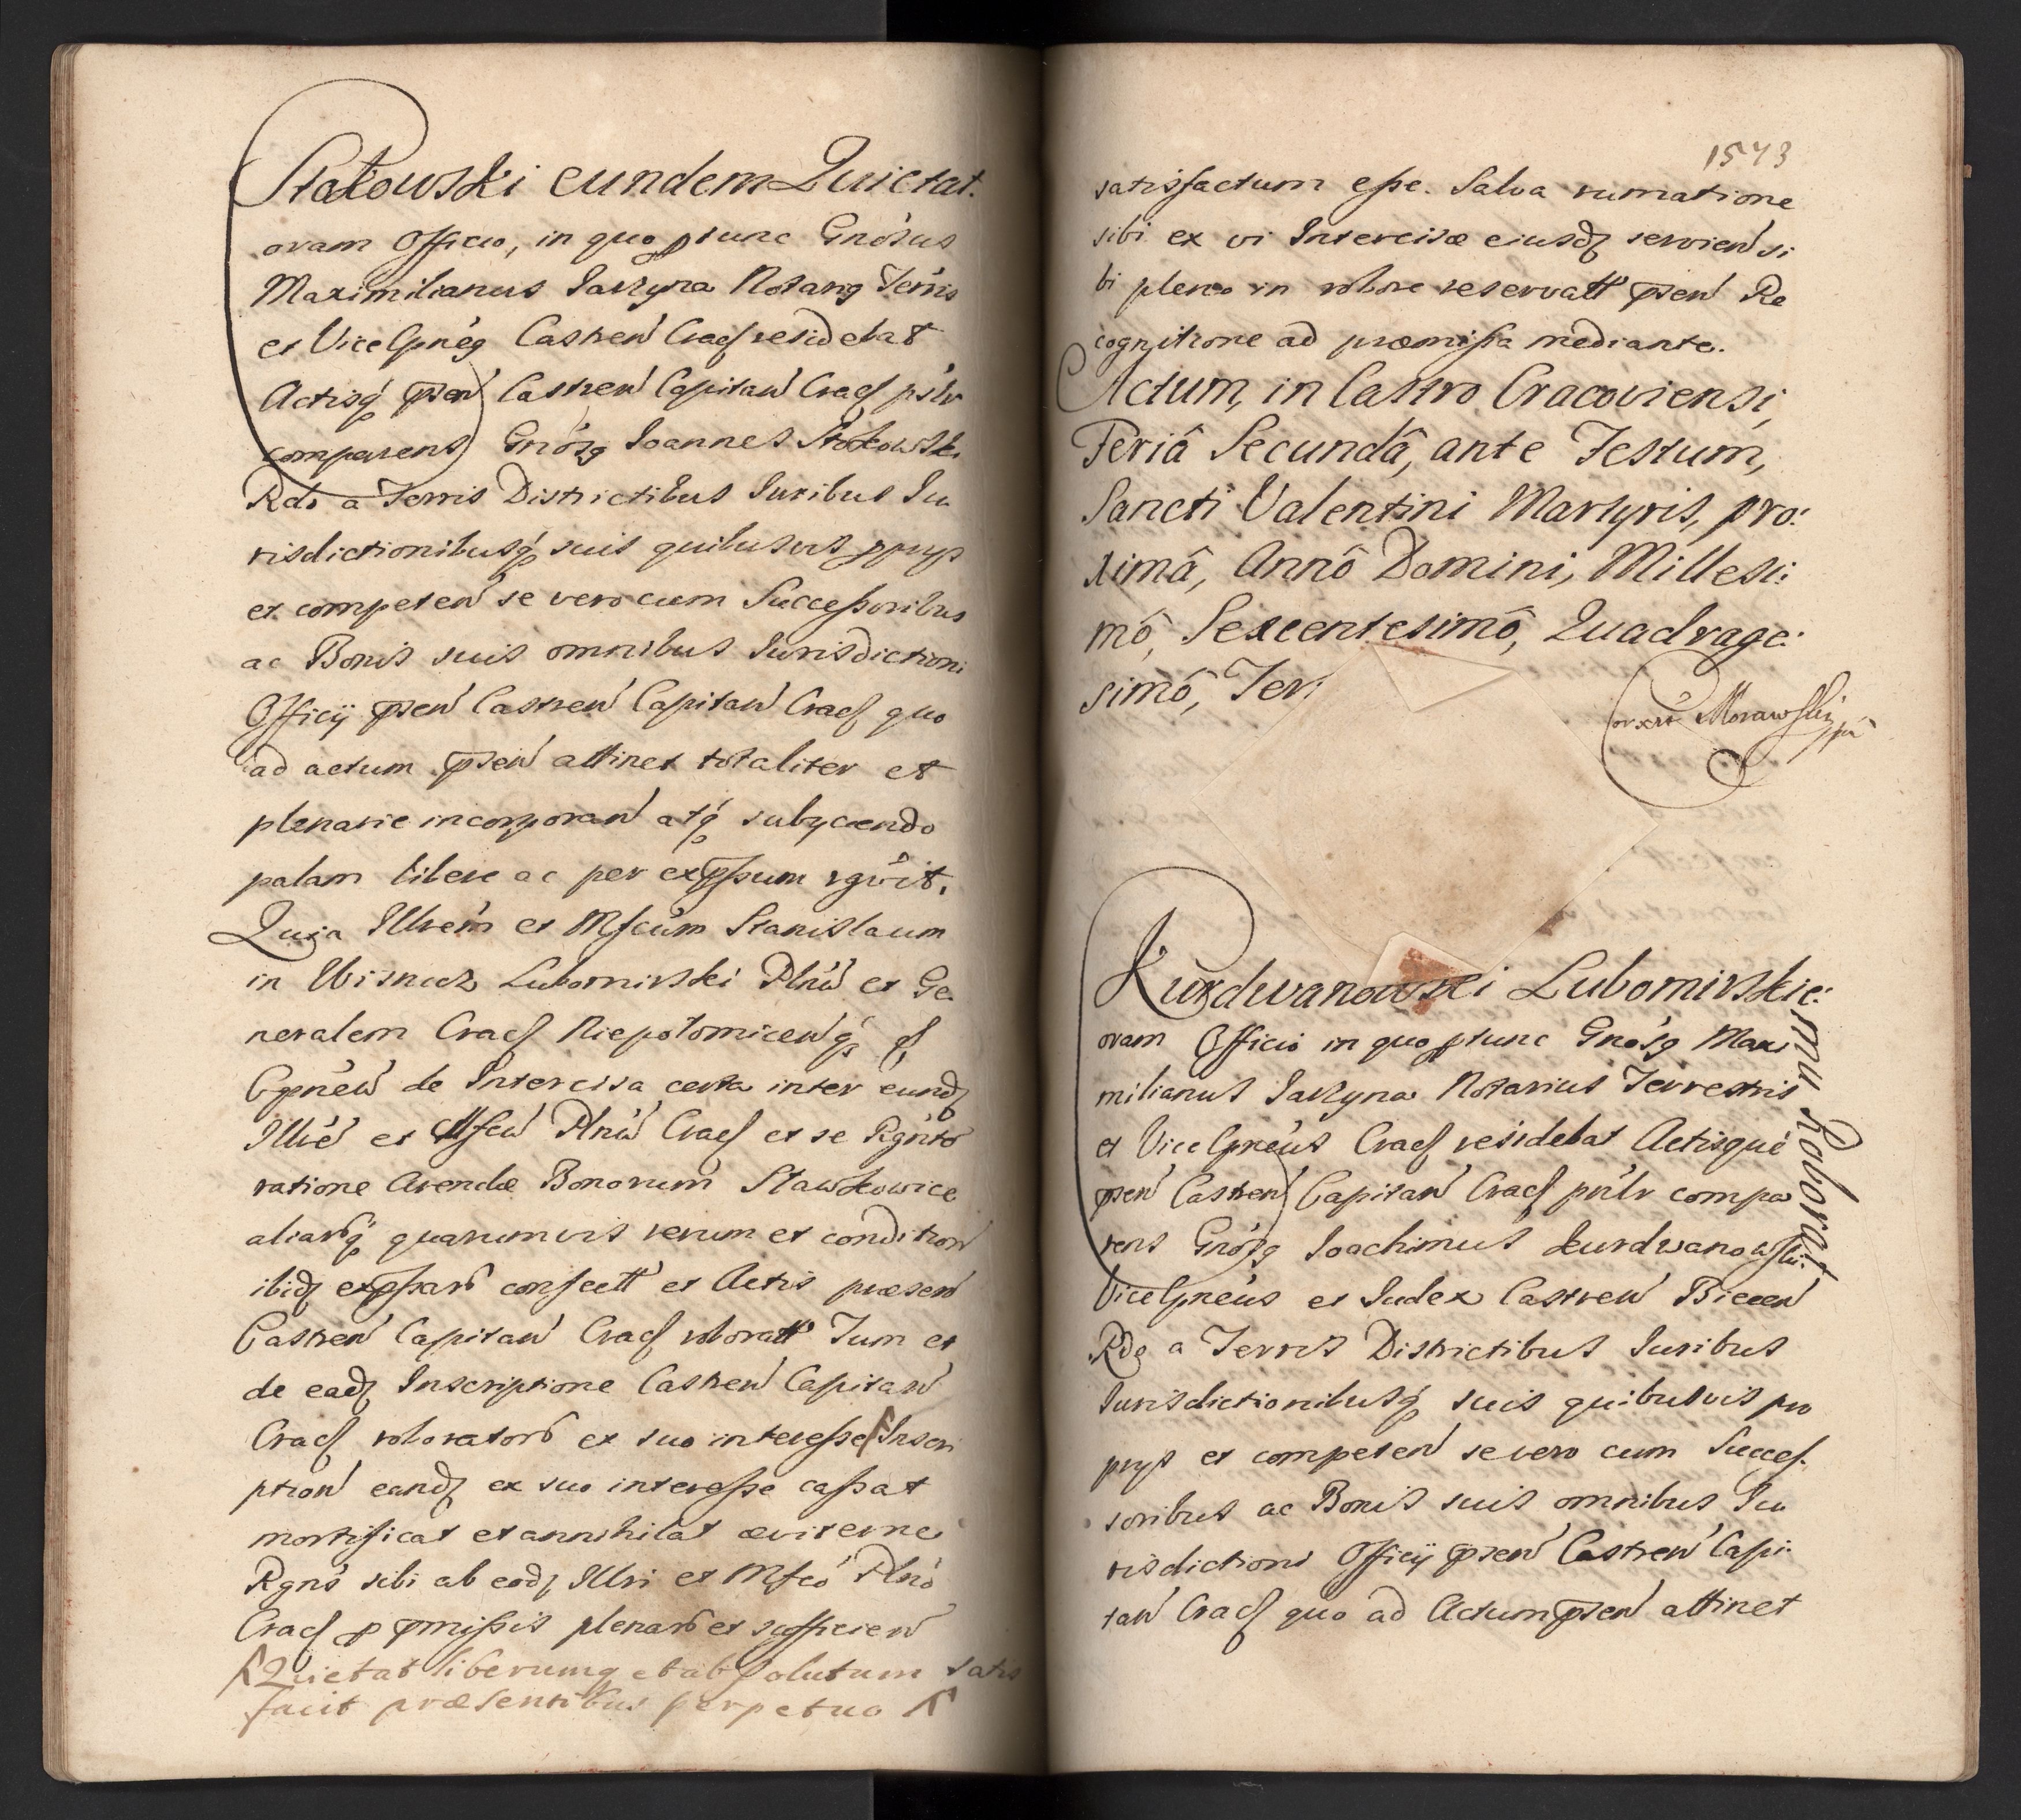 Stokowski eundem Quietat.
Coram Officio, in quo ptunc Gnósus
Maximilianus Jarzyna Notarq Terris
et Vice Cpnéq Castren Cracf residebat
Actisq́ psen Castren Capitan Cracf pslr
comparens Gnósq Joannes Stokowski
Rdo a Terris Districtibus Iuribus Iu
risdictionibusq́ suis quibusvis pprys
et competen se vero cum Successoribus
ac Bonis suis omnibus Iurisdictioni
Officÿ psen Castren Capitan Cracf quo
ad actum psen attinet totaliter et
plenarie incorporan atq́ subyciendo
palam libere ac per expssum rgvit.
Quia Illrém et Mfcúm Stanislaum
in Wisnicz Lubomirski Plnú et Ge
neralem Cracf Niepołomicenq́
Cpnéu de Intercisa certa inter eund
Illré et Mfcu Plnú Cracf et se Rgnto
ratione Arendæ Bonorum Stawkowice
aliarq́ quarumvis rerum et condition
ibid expssar confectt et Actis præsen
Castren Capitan Cracf roboratt Tum et
de ead Inscriptione Castren Capitan
Cracf roborator ex suo interesse Inscri
ption eand ex suo interesse cassat
mortificat et annihilat æviterne
Rgns sibi ab eod Illri et Mfcó Plnó
Cracf p pmissis plenar et sufficien
Quietat liberumq et absolutum satis
facit præsentibus perpetuo
1573
satisfactum esse. Salva rumatione
sibi ex vi Intercisæ eiusd servien si
bi pleno in robore reservatt psen Re
cognitione ad præmissa mediante.
Actum, in Castro Cracoviensi,
Feriâ Secundâ, ante Festum,
Sancti Valentini Martyris, pro:
ximâ, Annô Domini, Millesi:
mô, Sexcentesimô, Quadrage:
simô, Ter
Corxit Morawski
Kurdwanowski Lubomirskie:
mu Roborat
Coram Officio in quo ptunc Gnósq Maxi
milianus Jarzyna Notarius Terrestris
et Vice Cpnéus Cracf residebat Actisque
psen Castren Capitan Cracf pnlr compa
rens Gnósq Joachimus Kurdwanowski
ViceCpnéus et Iudex Castren Biecen
Rdo a Terris Districtibus Iuribus
Iurisdictionibusq́ suis quibusvis pro
prys et competen se vero cum Succes-
soribus ac Bonis suis omnibus Iu
risdictioni Officÿ psen Castren Capi-
tan Cracf quo ad Actum psen attinet